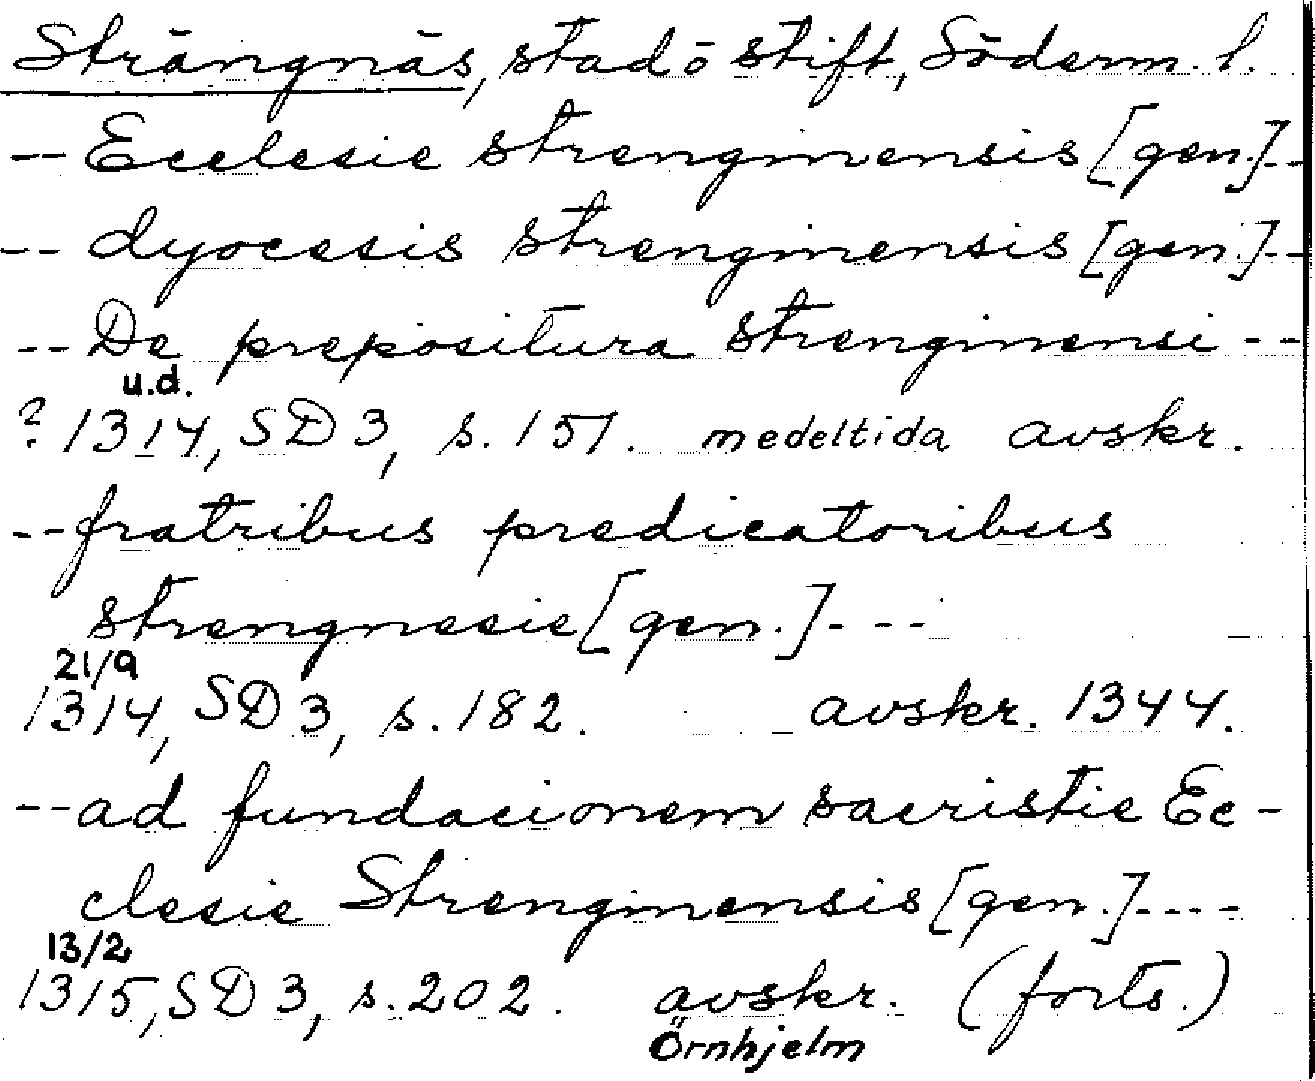 Strängnäs, stad o stift, Söderm. l.
-- Ecclesie strenginensis [gen.] --
-- dyocesis strenginensis [gen.] --
-- De prepositura strenginensi --
u.d.
? 1314, SD 3, s. 151. medeltida avskr.
-- fratribus predicatoribus
strengnesie [gen.] ---
21/9
1314, SD 3, s. 182. avskr. 1344.
-- ad fundacionem sacristie Ec-
clesie Strenginensis [gen.] ----
13/2
1315, SD 3, s. 202. avskr. (forts.)
Örnhjelm